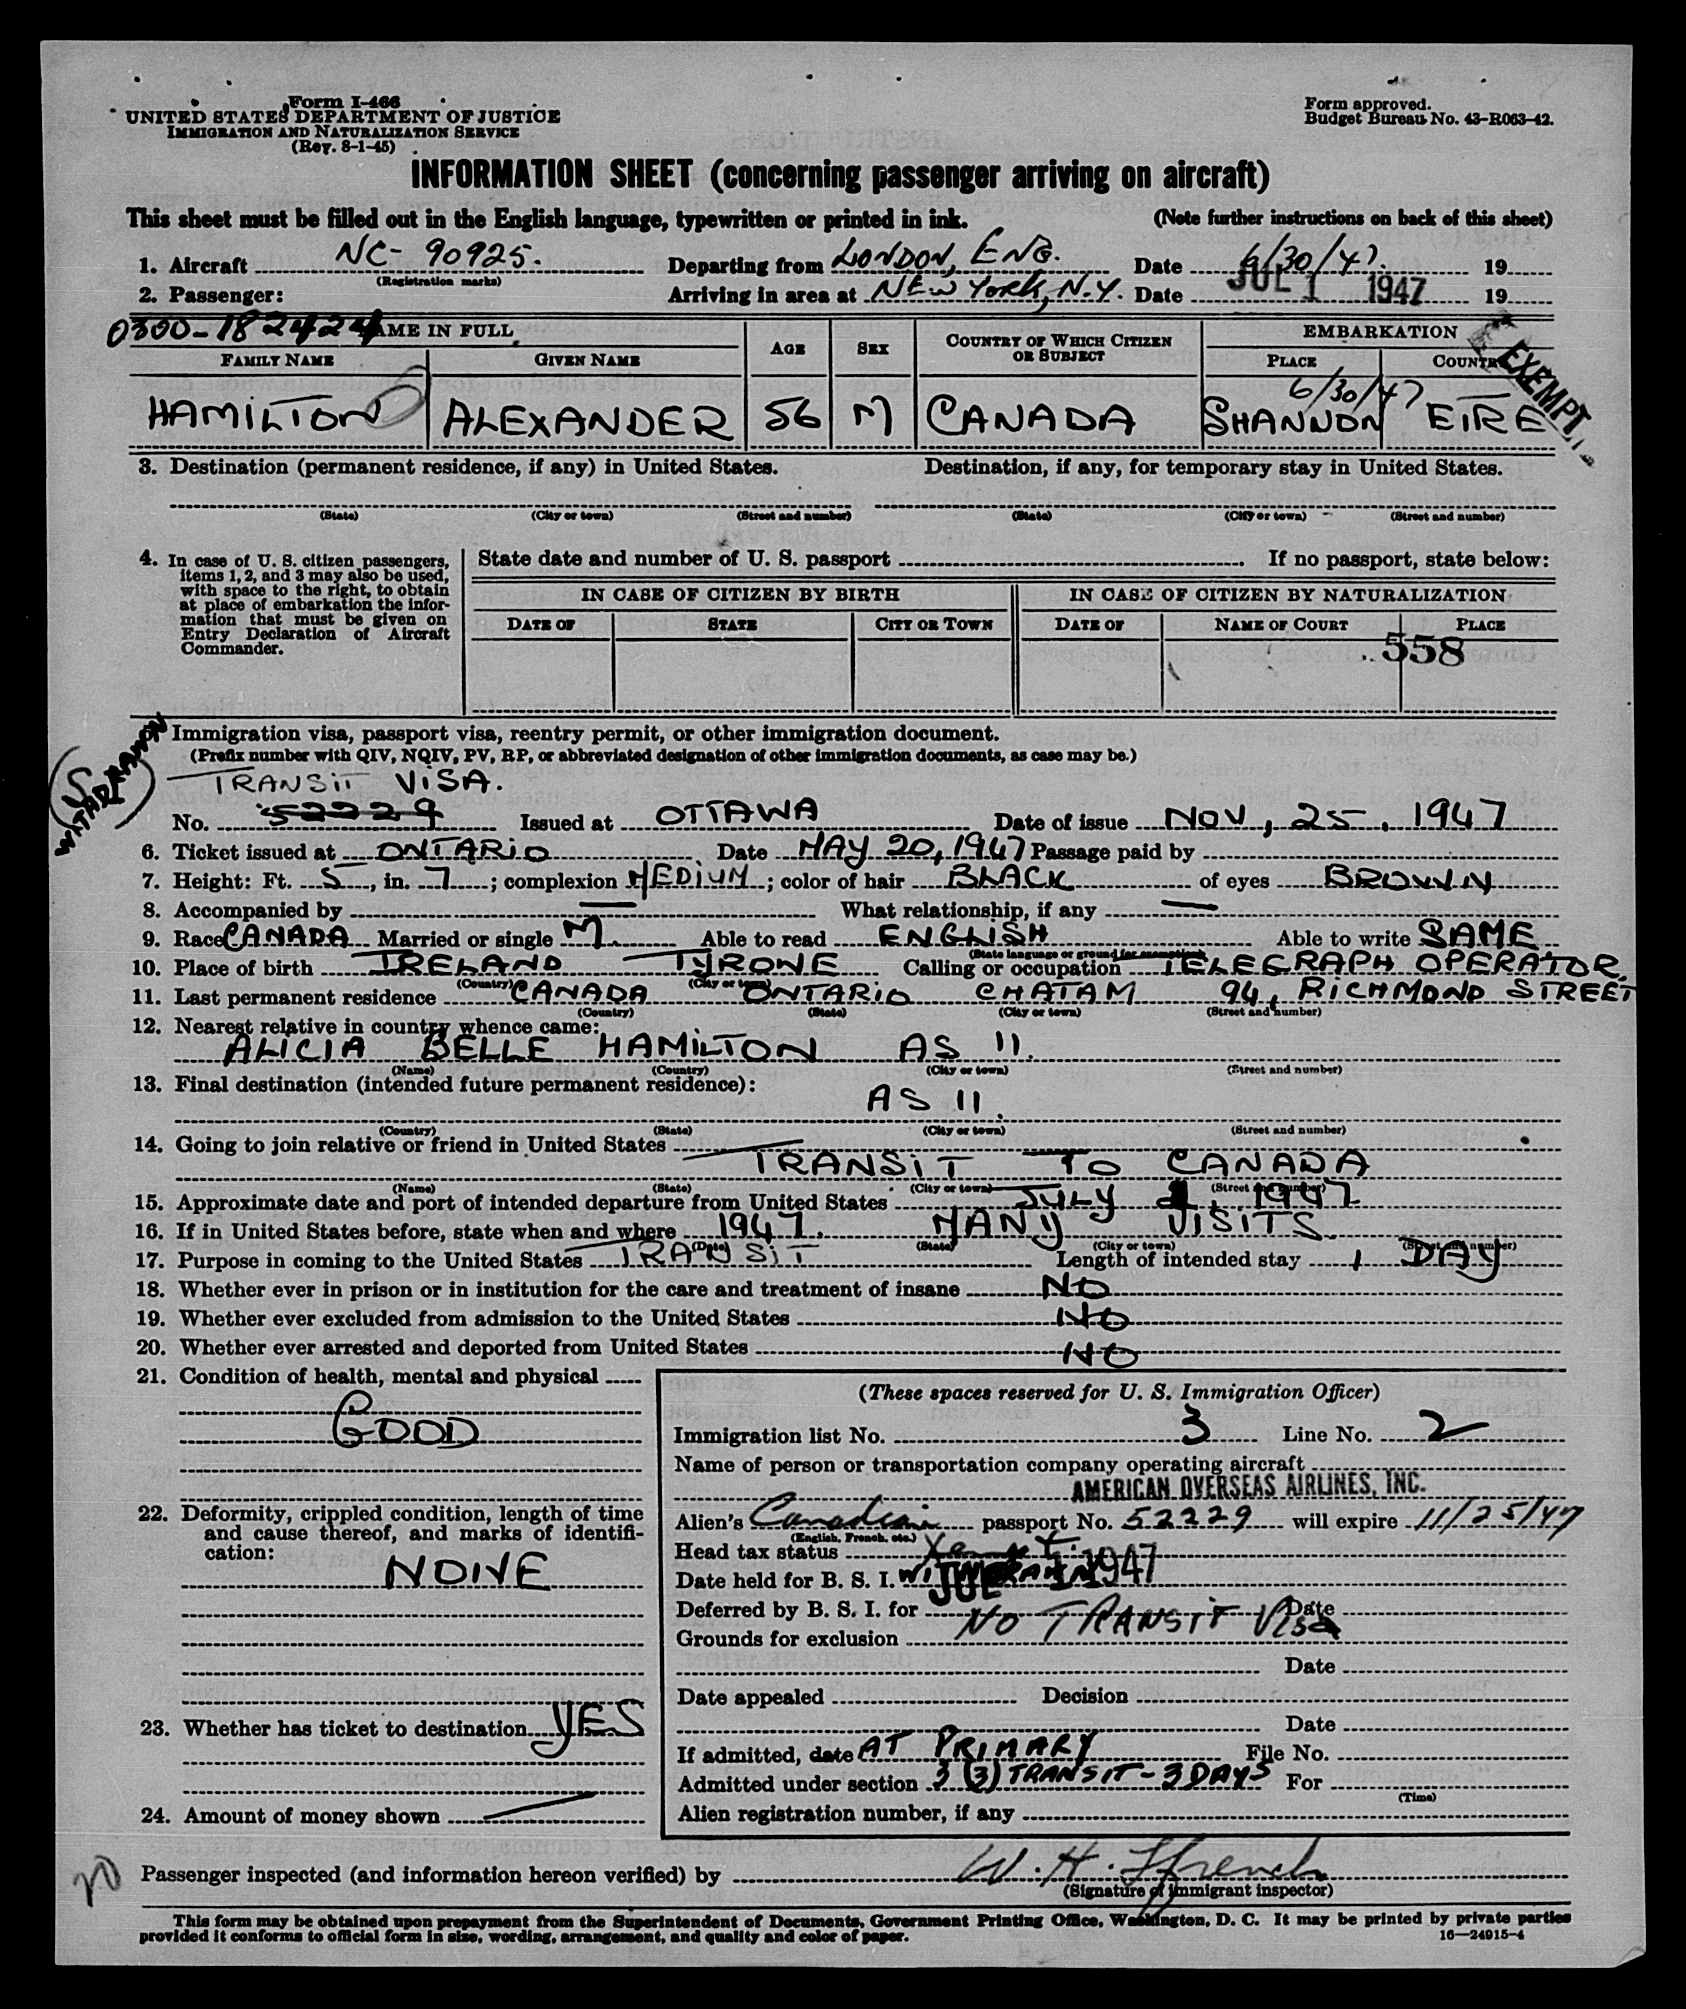 Form I-466
UNITED STATES DEPARTMENT OF JUSTICE
IMMIGRATION AND NATURALIZATION SERVICE
(Rev. 8-1-45)
Form approved.
Budget Bureau No. 43-R063-42.
INFORMATION SHEET (concerning passenger arriving on aircraft)
This sheet must be filled out in the English language, typewritten or printed in ink. (Note further instructions on back of this sheet)
1. Aircraft NC-90925. Departing from LONDON, ENG. Date 6/30/47. 19
(Registration marks)
2. Passenger: Arriving in area at NEW YORK, N.Y. Date JUL 1 1947 19
0300-182424 NAME IN FULL AGE SEX COUNTRY OF WHICH CITIZEN OR SUBJECT EMBARKATION
FAMILY NAME GIVEN NAME PLACE COUNTRY
EXEMPT
6/30/47
HAMILTON ALEXANDER 56 M CANADA SHANNON EIRE
3. Destination (permanent residence, if any) in United States. Destination, if any, for temporary stay in United States.
(State) (City or town) (Street and number) (State) (City or town) (Street and number)
4. In case of U. S. citizen passengers, items 1, 2, and 3 may also be used, with space to the right, to obtain at place of embarkation the information that must be given on Entry Declaration of Aircraft Commander.
State date and number of U. S. passport . If no passport, state below:
IN CASE OF CITIZEN BY BIRTH IN CASE OF CITIZEN BY NATURALIZATION
DATE OF STATE CITY OR TOWN DATE OF NAME OF COURT PLACE
558
Immigration visa, passport visa, reentry permit, or other immigration document.
(Prefix number with QIV, NQIV, PV, RP, or abbreviated designation of other immigration documents, as case may be.)
TRANSIT VISA.
No. 52229 Issued at OTTAWA Date of issue NOV, 25, 1947
6. Ticket issued at ONTARIO Date MAY 20, 1947 Passage paid by
7. Height: Ft. 5, in. 7; complexion MEDIUM; color of hair BLACK of eyes BROWN
8. Accompanied by — What relationship, if any —
9. Race CANADA Married or single M. Able to read ENGLISH Able to write SAME
(State language or ground for exemption)
10. Place of birth IRELAND TYRONE Calling or occupation TELEGRAPH OPERATOR.
(Country) (City or town)
11. Last permanent residence CANADA ONTARIO CHATAM 94, RICHMOND STREET
(Country) (State) (City or town) (Street and number)
12. Nearest relative in country whence came:
ALICIA BELLE HAMILTON AS 11.
(Name) (Country) (City or town) (Street and number)
13. Final destination (intended future permanent residence):
AS 11.
(Country) (State) (City or town) (Street and number)
14. Going to join relative or friend in United States
TRANSIT TO CANADA
(Name) (State) (City or town) (Street and number)
15. Approximate date and port of intended departure from United States JULY 1, 1947
16. If in United States before, state when and where 1947. MANY VISITS.
(Date) (State) (City or town) (Street and number)
17. Purpose in coming to the United States TRANSIT Length of intended stay 1 DAY
18. Whether ever in prison or in institution for the care and treatment of insane NO
19. Whether ever excluded from admission to the United States NO
20. Whether ever arrested and deported from United States NO
21. Condition of health, mental and physical
GOOD
22. Deformity, crippled condition, length of time and cause thereof, and marks of identification:
NONE
23. Whether has ticket to destination YES
24. Amount of money shown
(These spaces reserved for U. S. Immigration Officer)
Immigration list No. 3 Line No. 2
Name of person or transportation company operating aircraft
AMERICAN OVERSEAS AIRLINES, INC.
Alien's Canadian passport No. 52229 will expire 11/25/47
(English, French, etc.)
Head tax status
Date held for B. S. I. JUL 1 1947
Deferred by B. S. I. for Date
NO TRANSIT Visa
Grounds for exclusion
Date
Date appealed Decision
Date
If admitted, date AT PRIMARY File No.
Admitted under section 3 (3) TRANSIT - 3 DAYS For
(Time)
Alien registration number, if any
Passenger inspected (and information hereon verified) by W. H. Ffrench
(Signature of immigrant inspector)
This form may be obtained upon prepayment from the Superintendent of Documents, Government Printing Office, Washington, D. C. It may be printed by private parties
provided it conforms to official form in size, wording, arrangement, and quality and color of paper.
16—24915-4